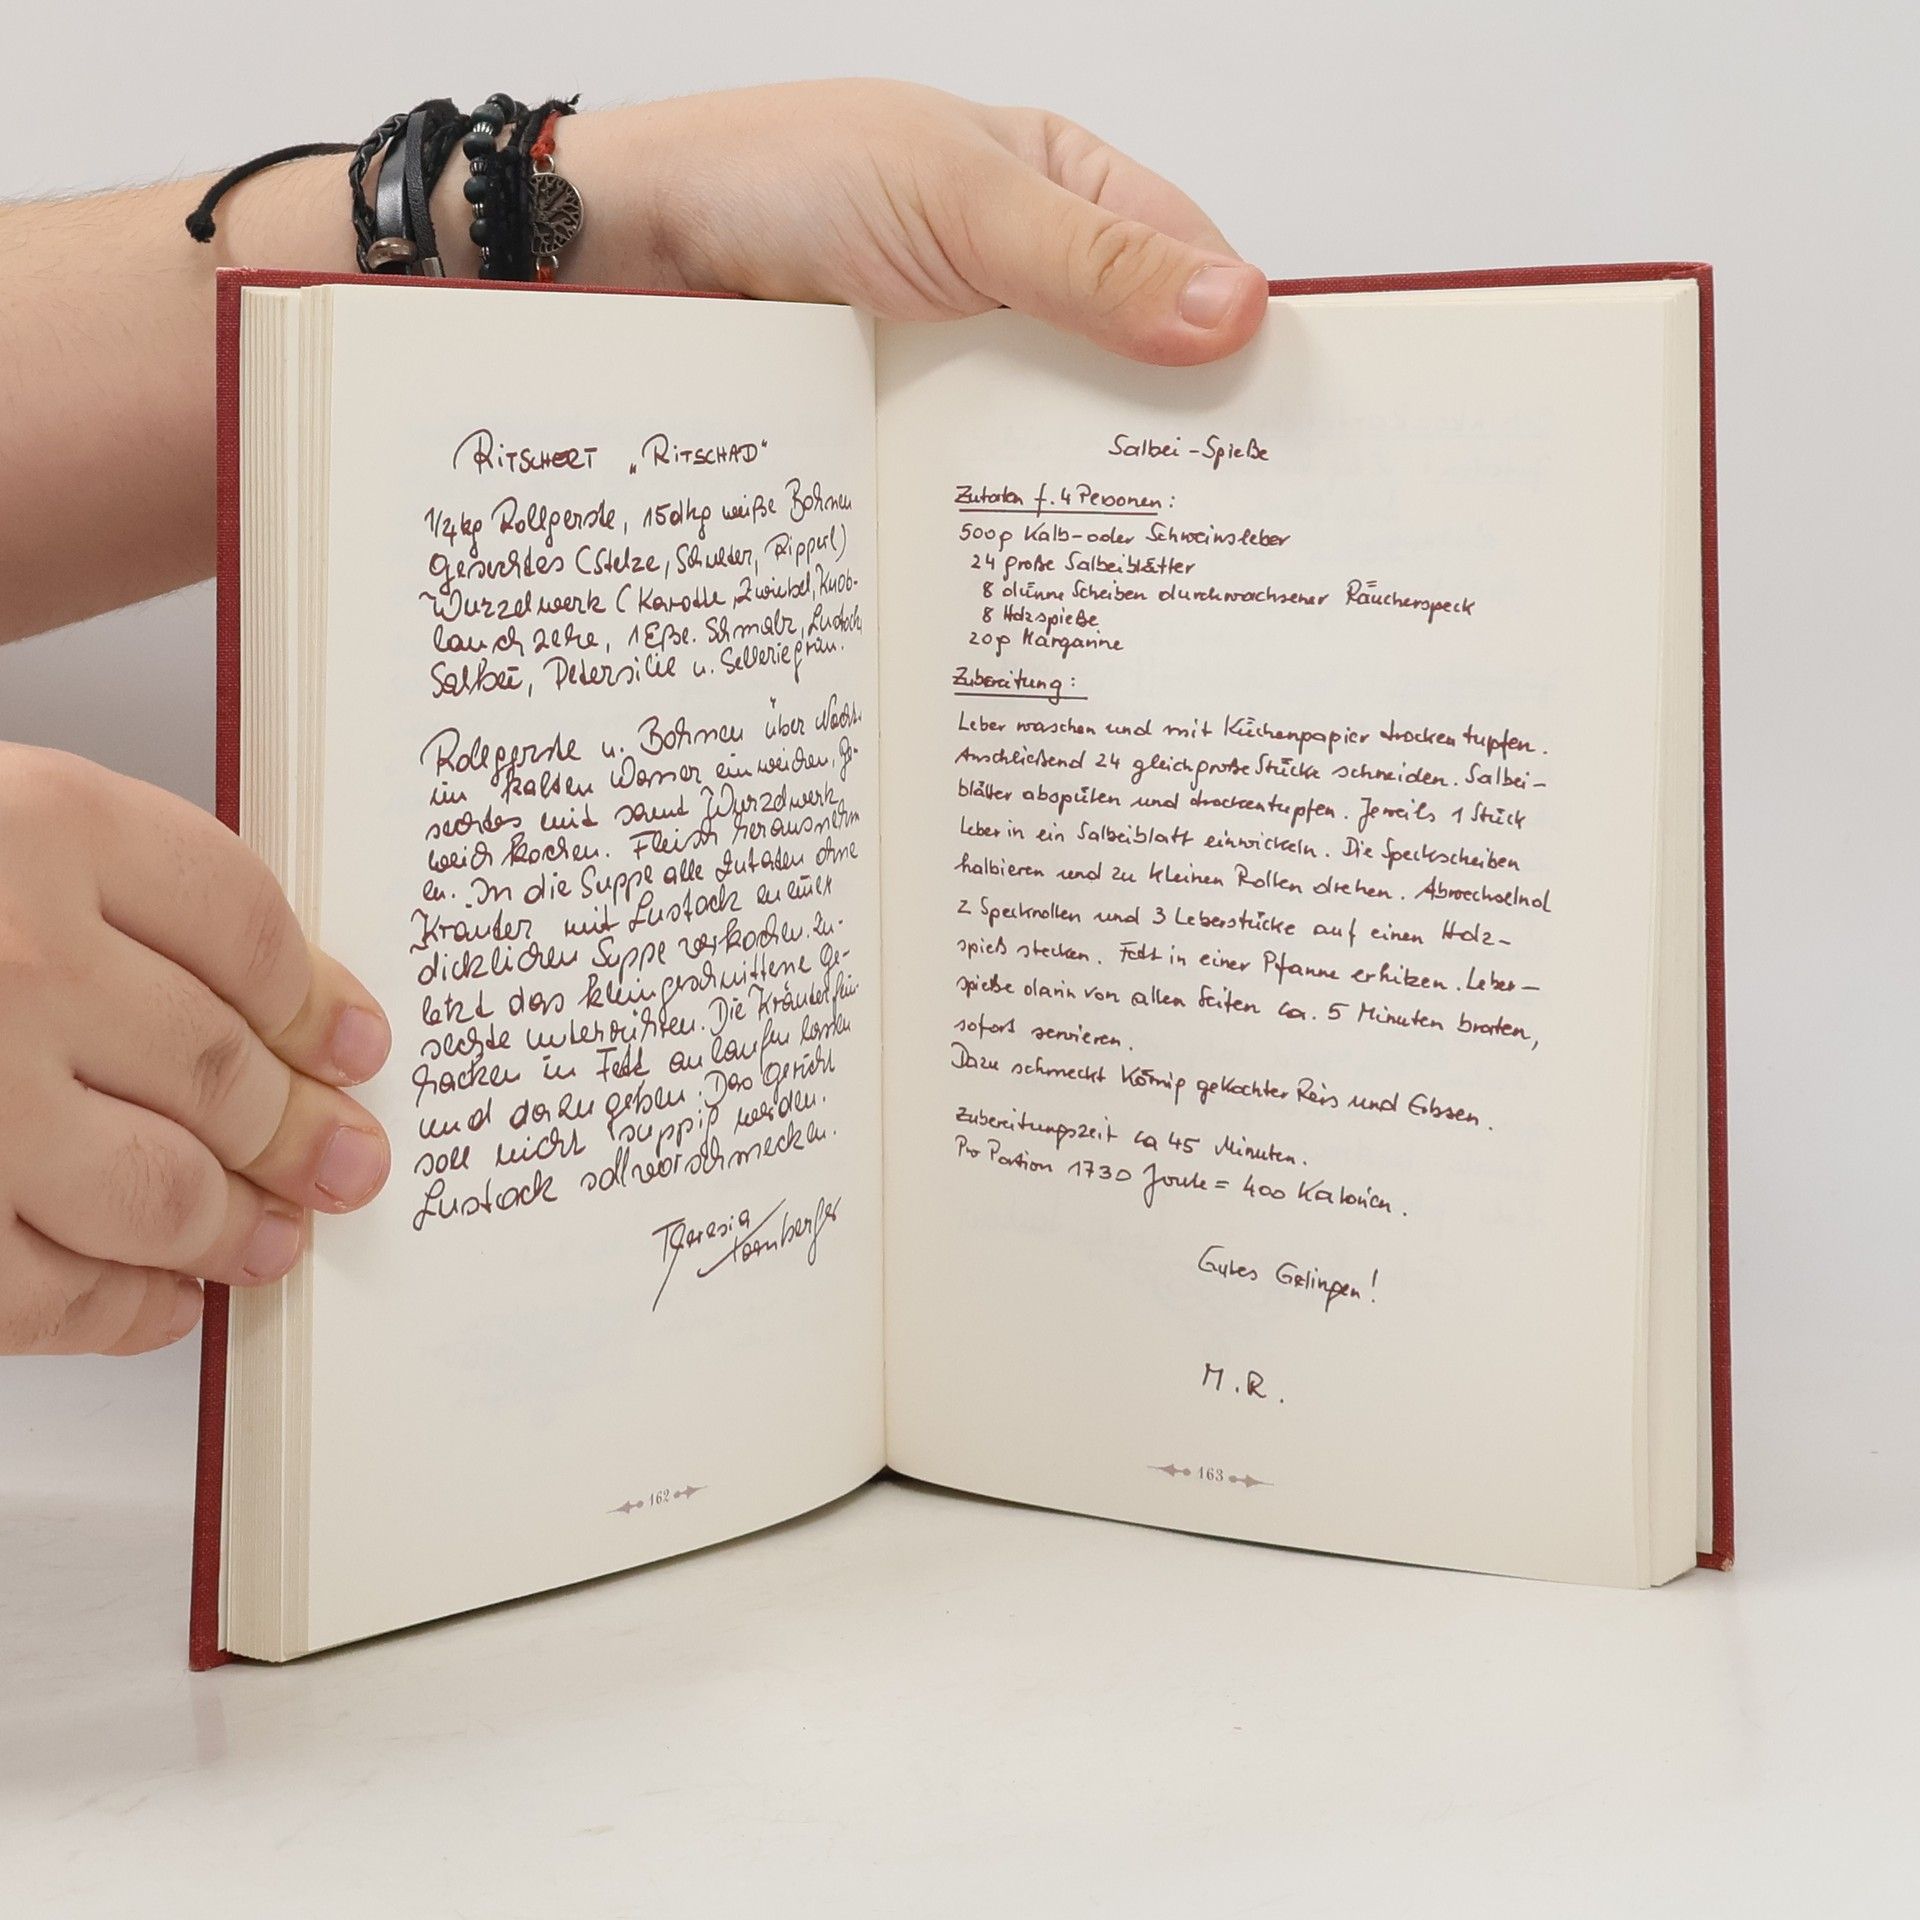 RITSCHERT „RITSCHAD"
1/4 kg Rollgerste, 15 dkg weiße Bohnen
Geselchtes (Stelze, Schulter, Ripperl)
Wurzelwerk (Karotte, Zwiebel, Knob-
lauchzehe, 1 Eßl. Schmalz, Lustock,
Salbei, Petersilie u. Selleriegrün.
Rollgerste u. Bohnen über Nacht
im kalten Wasser einweichen, Ge-
selchtes mit samt Wurzelwerk
weich kochen. Fleisch herausnehm
en. In die Suppe alle Zutaten ohne
Kräuter mit Lustock zu einer
dicklichen Suppe verkochen. Zu-
letzt das kleingeschnittene Ge-
selchte unterrühren. Die Kräuter fein
hacken in Fett anlaufen lassen
und dazu geben. Das Gericht
soll nicht suppig werden.
Lustock soll vorschmecken.
Theresia
162
Salbei-Spieße
Zutaten f. 4 Personen:
500g Kalb- oder Schweinsleber
24 große Salbeiblätter
8 dünne Scheiben durchwachsener Räucherspeck
8 Holzspieße
20g Margarine
Zubereitung:
Leber waschen und mit Küchenpapier trocken tupfen.
Anschließend 24 gleichgroße Stücke schneiden. Salbei-
blätter abspülen und trockentupfen. Jeweils 1 Stück
Leber in ein Salbeiblatt einwickeln. Die Speckscheiben
halbieren und zu kleinen Rollen drehen. Abwechselnd
2 Speckrollen und 3 Leberstücke auf einen Holz-
spieß stecken. Fett in einer Pfanne erhitzen. Leber-
spieße darin von allen Seiten ca. 5 Minuten braten,
sofort servieren.
Dazu schmeckt körnig gekochter Reis und Erbsen.
Zubereitungszeit ca 45 Minuten.
Pro Portion 1730 Joule = 400 Kalorien.
Gutes Gelingen!
M.R.
163